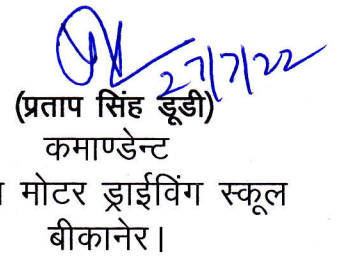 27/7/22
(प्रताप सिंह डूडी)
कमाण्डेन्ट
मोटर ड्राईविंग स्कूल
बीकानेर।